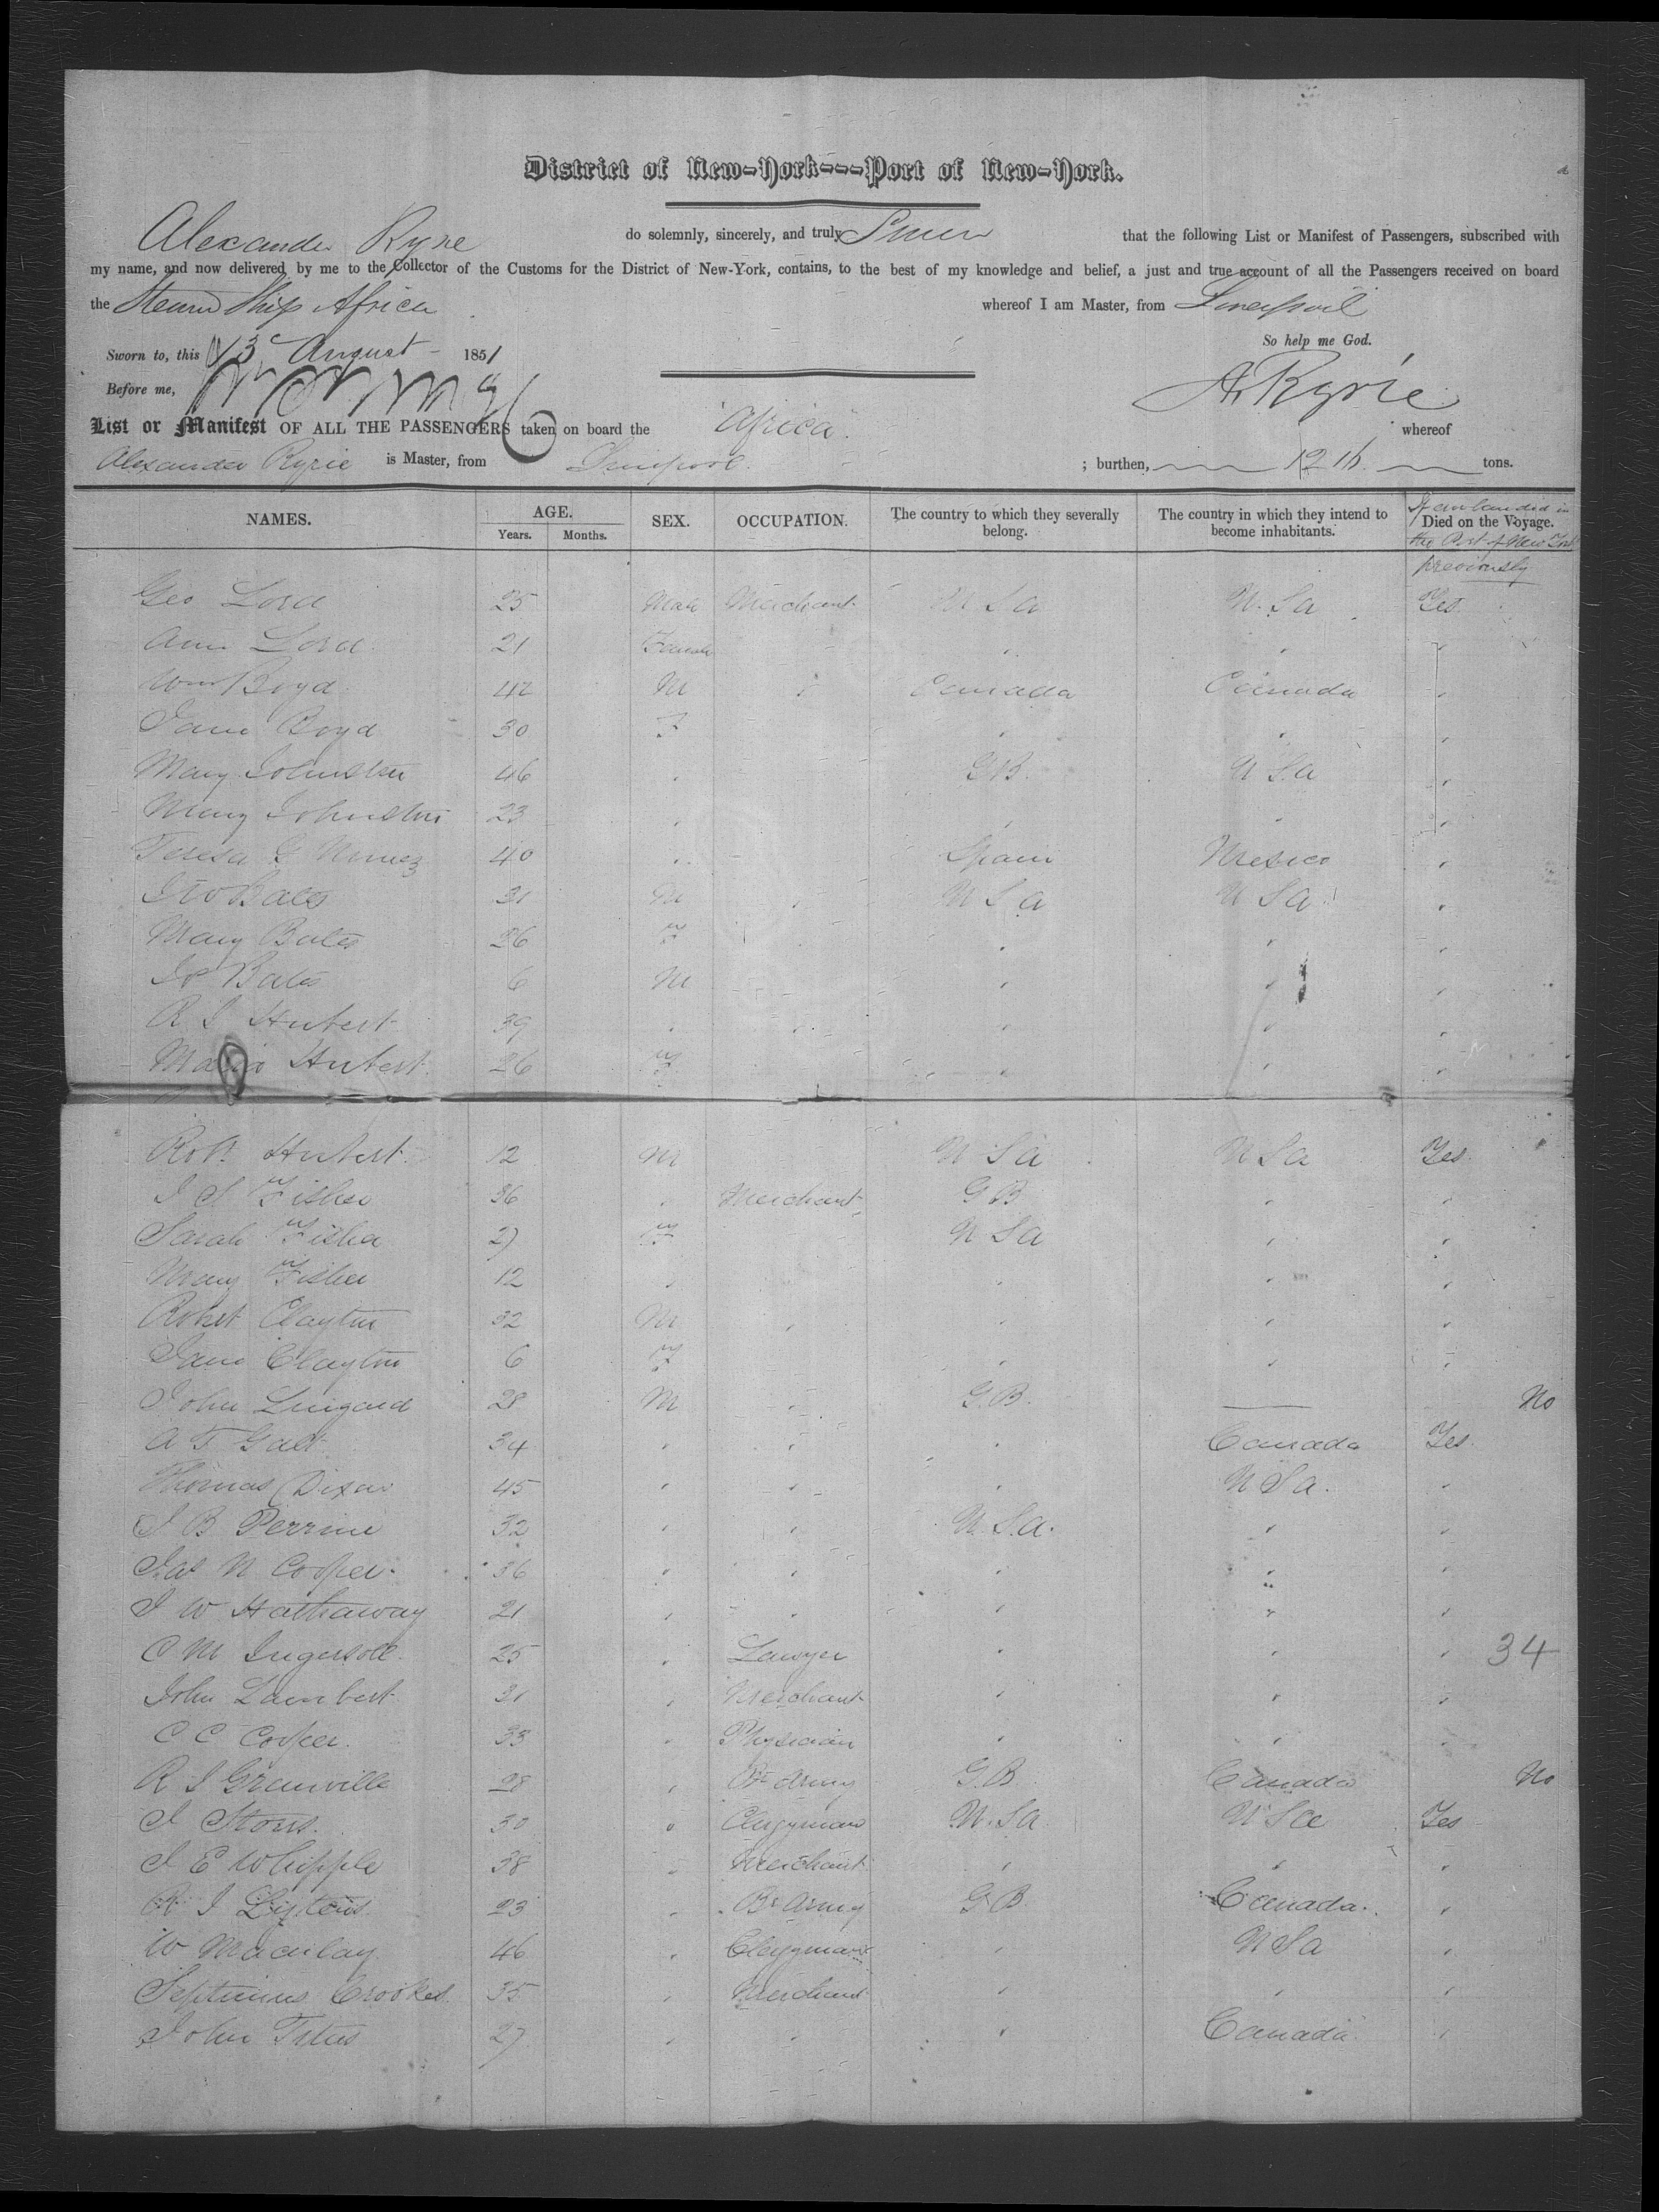 District of New-York---Port of New-York.
Alexander Ryrie do solemnly, sincerely, and truly Swear that the following List or Manifest of Passengers, subscribed with
my name, and now delivered by me to the Collector of the Customs for the District of New-York, contains, to the best of my knowledge and belief, a just and true account of all the Passengers received on board
the Steam Ship Africa whereof I am Master, from Liverpool
So help me God.
Sworn to, this 13 August 1851
Before me, A. Ryrie
List or Manifest OF ALL THE PASSENGERS taken on board the Africa whereof
Alexander Ryrie is Master, from Liverpool ; burthen, tons.
NAMES. AGE. Years. Months. SEX. OCCUPATION. The country to which they severally belong. The country in which they intend to become inhabitants. Died on the Voyage.
the Port of New York
previously
Geo Lord 25 Male Merchant U S A U. S A Yes
Ann Lord 21 Female "
Wm Boyd 42 M " Canada Canada "
Jane Boyd 30 F " " "
Mary Johnston 46 " G B. U S A "
Mary Johnston 23 " " " "
Teresa G Nunez 40 " Spain Mexico "
Bates 31 M " U S A U S A "
Mary Bates 26 F " " "
Jos Bates 6 M " " "
R S Hubert 39 " " " " "
Maria Hubert 26 F " " "
Robt Hubert 12 M U S A U S A Yes
J S Fisher 36 " Merchant G B " "
Sarah Fisher 27 F U S A " "
Mary Fisher 12 " " " "
Robert Clayton 32 M " " " "
Jane Clayton 6 F " " "
John Lingard 28 M " G. B. —— No
A T Galt 34 " " " Canada Yes
Thomas Dixon 45 " " " U S A. "
J B Perrine 32 " " U. S. A. " "
Jas N Cooper 36 " " " " "
J W Hathaway 21 " " " " "
C M Ingersoll 25 " Lawyer " " " 34
John Lambert 31 " Merchant " " "
C C Cooper. 33 " Physician " " "
R S Granville 28 " Br Army G. B Canada No
J Storrs. 30 " Clergyman U. S A U S A Yes
J E Whipple 38 " Merchant " " "
R J 23 " Br Army G B Canada. "
W Macilay 46 " Clergyman " U S A "
Septimus Crookes 35 " Merchant " " "
John Titus 27 " " " Canada "